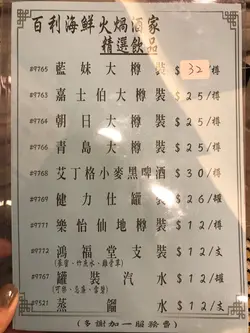 百利海鮮火焗酒家
精選飲品
#9765 藍妹大樽裝 $32/樽
#9763 嘉士伯大樽裝 $25/樽
#9764 朝日大樽裝 $25/樽
#9766 青島大樽裝 $25/樽
#9768 艾丁格小麥黑啤酒 $30/樽
#9769 健力士罐裝 $26/罐
#9777 樂怡仙地樽裝 $12/樽
#9772 鴻福堂支裝 $12/支
#9767 罐裝汽水 $12/罐
(可樂、忌廉、雪碧)
#9521 蒸餾水 $12/支
(多謝加一服務費)